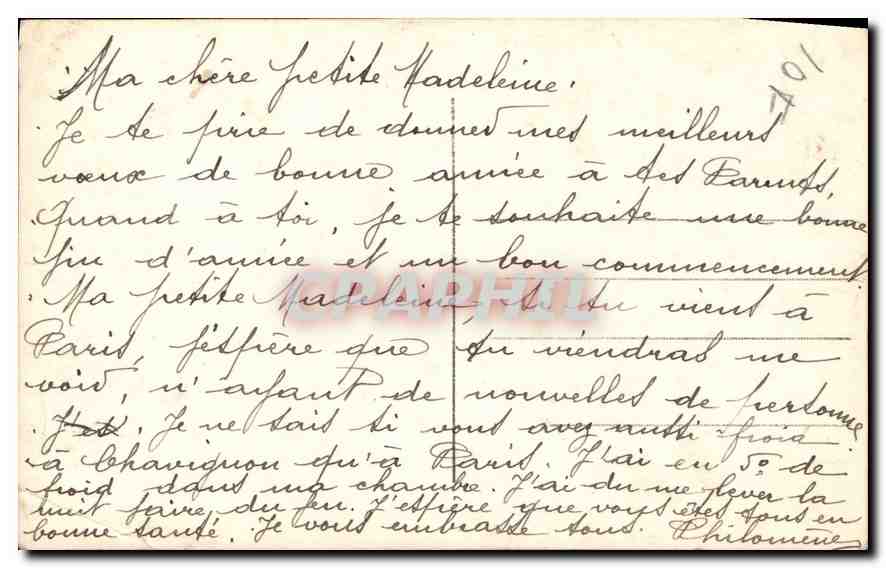 Ma chère petite Madeleine.
Je te prie de donner mes meilleurs
vœux de bonne année à tes Parents,
Quand à toi, je te souhaite une bonne
fin d'année et un bon commencement
Ma petite Madeleine, si tu vient à
Paris, j'éspère que tu viendras me
voir, n'ayant de nouvelles de personne
. Je ne sais si vous avez aussi froid
à Chavignon qu'à Paris. J'ai eu 5° de
froid dans ma chambre. J'ai du me lever la
nuit faire du feu. J'espère que vous êtes tous en
bonne santé. Je vous embrasse tous. Philomène
CPAPHIL